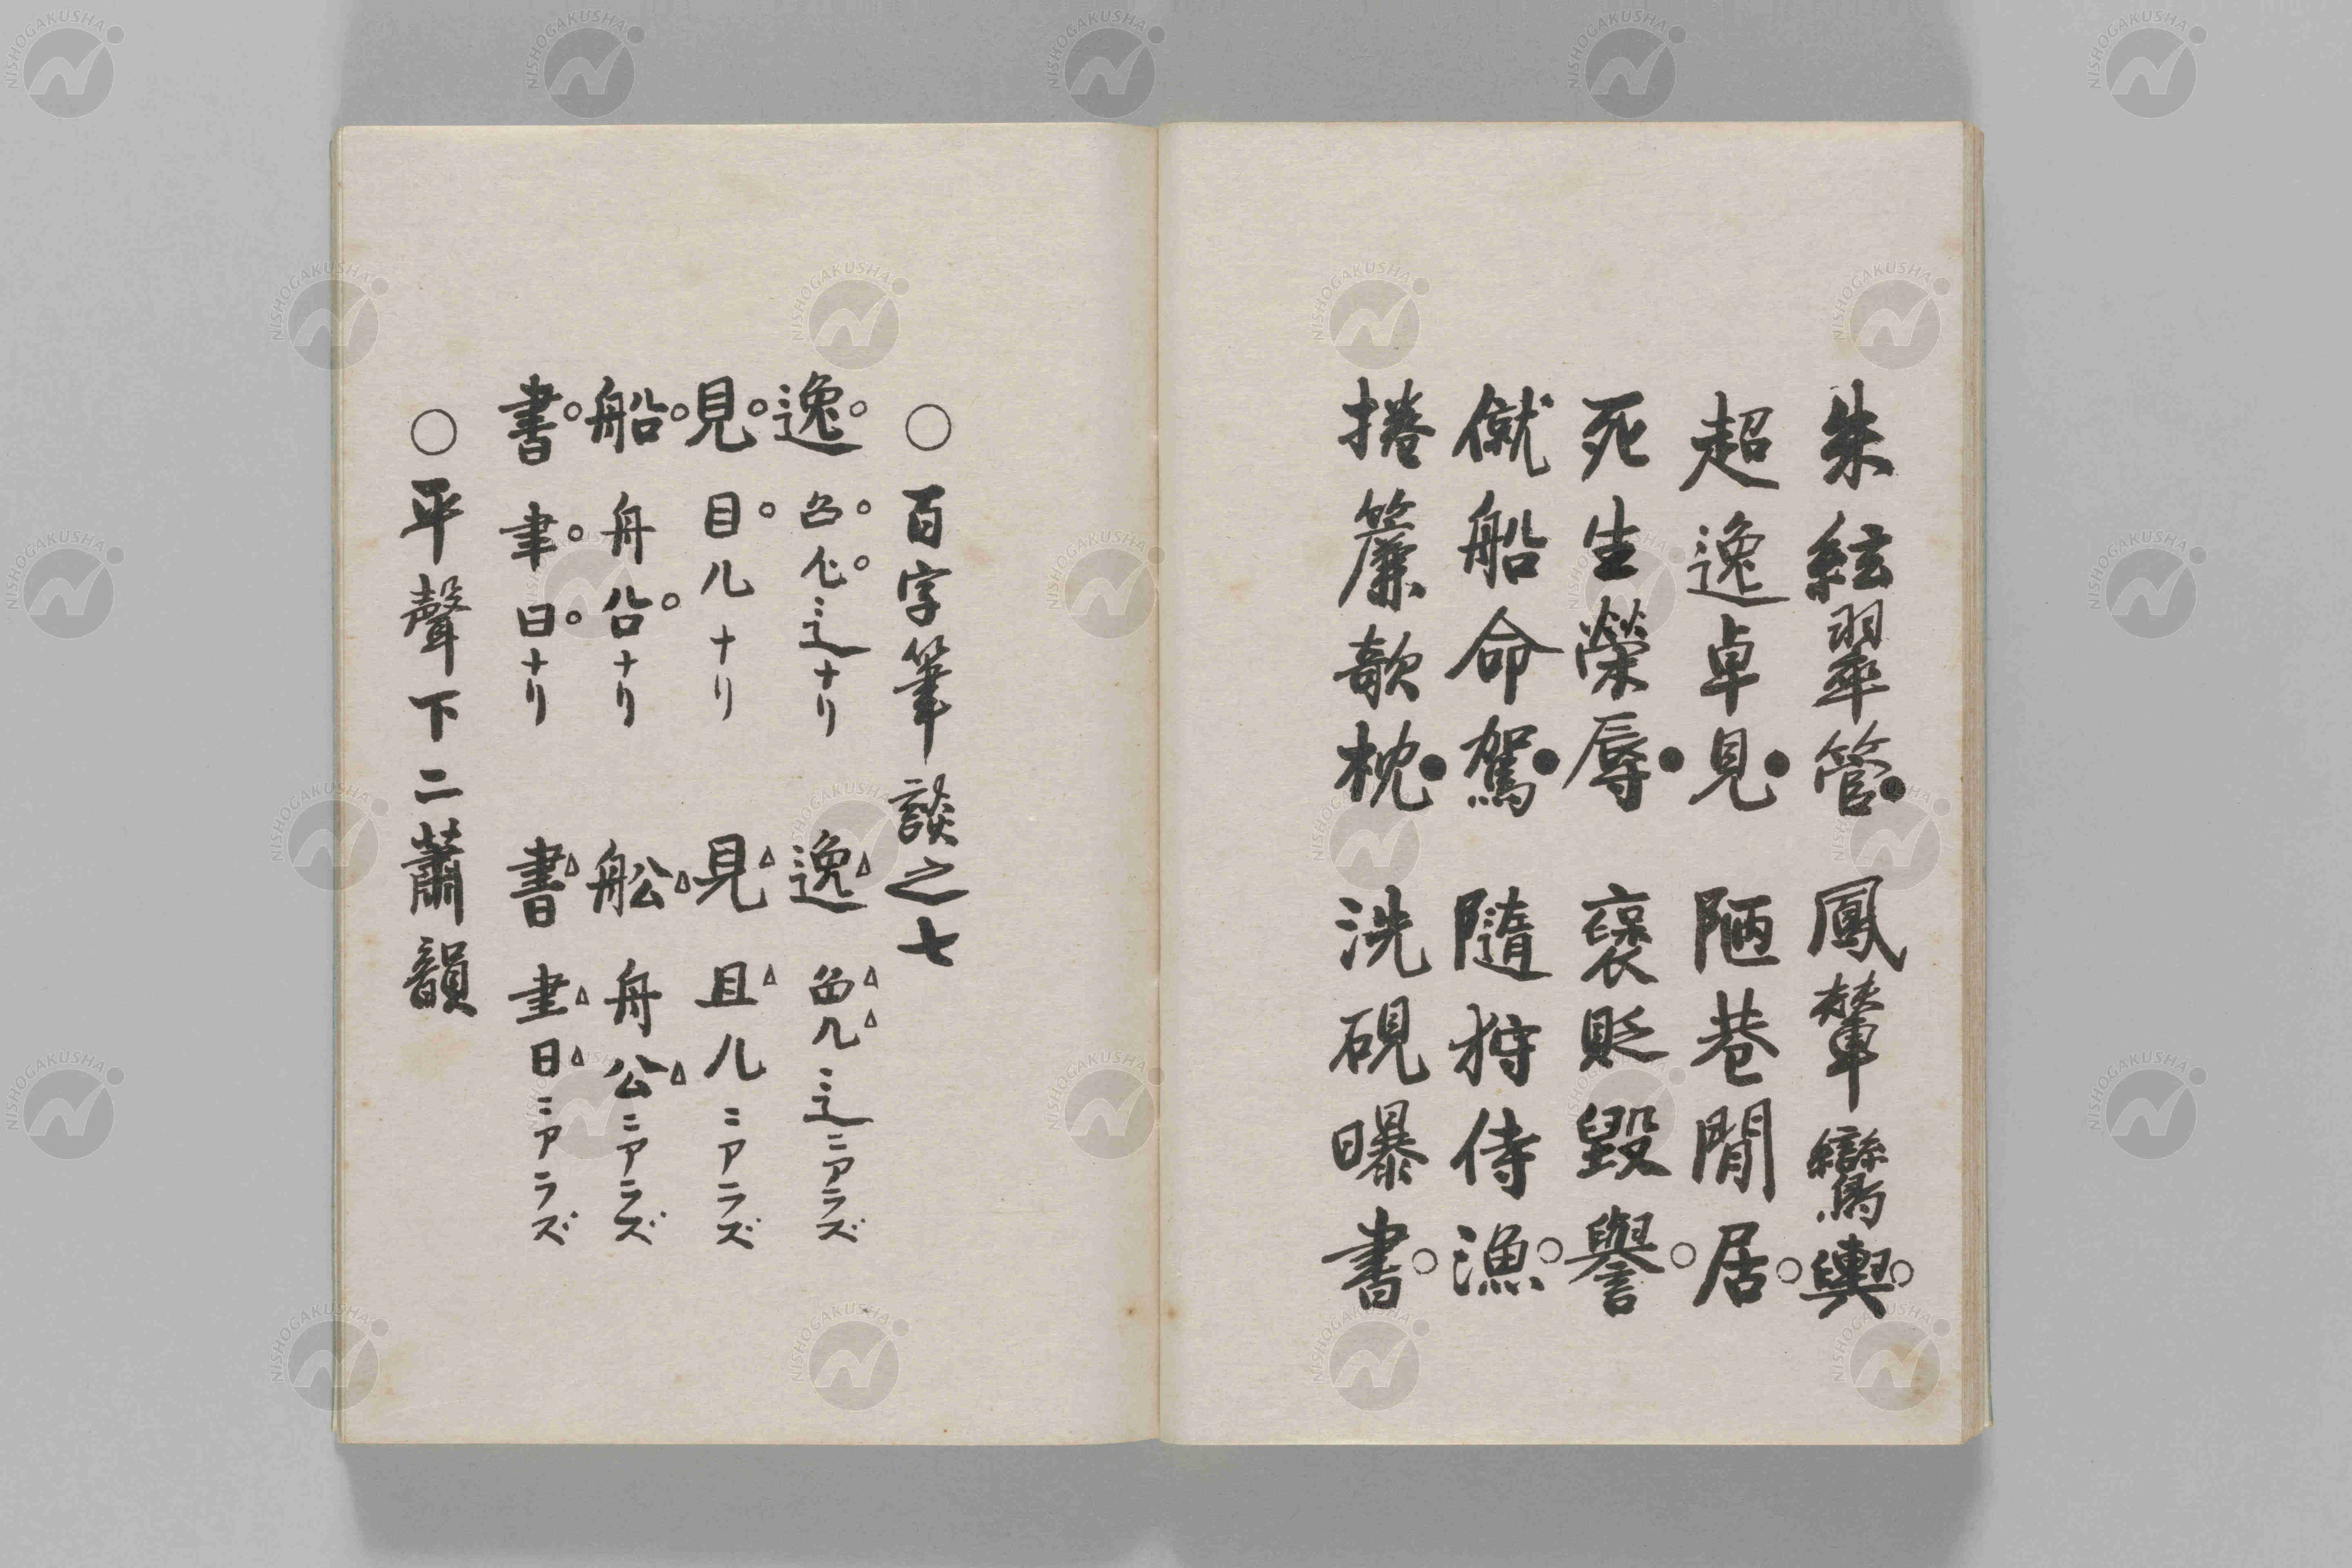 朱絃翠管●鳳輦鸞輿○
超逸卓見●陋巷閒居○
死生榮辱●褒貶毀譽○
僦船命駕●隨狩侍漁○
捲簾欹枕●洗硯曝書○
○百字筆談之七
逸○ 㕣○ 㐅○ 辶ナリ 逸△ 免△ 儿△ 辶ニアラズ
見○ 目○儿ナリ 見△ 且△儿ニアラズ
船○ 舟㕣○ナリ 舩△ 舟公△ニアラズ
書○ 聿○曰○ナリ 書△ 𦘒△日△ニアラズ
○平聲下二蕭韻
NISHOGAKUSHA